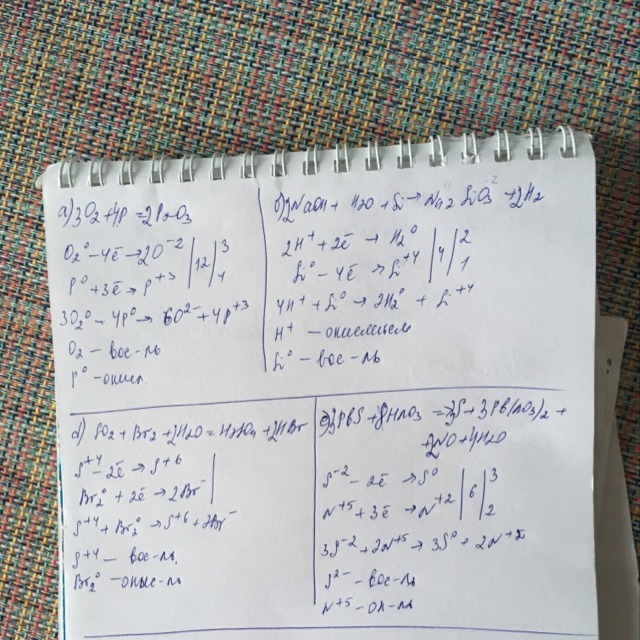 а) 3O₂ + 4P = 2P₂O₃
O₂⁰ – 4ē → 2O⁻² | 12 | 3
P⁰ + 3ē → P⁺³ | 4
3O₂⁰ – 4P⁰ → 6O²⁻ + 4P⁺³
O₂ – вос-ль
P⁰ – окисл.
б) 2NaOH + H₂O + Si → Na₂SiO₃ + 2H₂
2H⁺ + 2ē → H₂⁰ | 4 | 2
Si⁰ – 4ē → Si⁺⁴ | 1
4H⁺ + Si⁰ → 2H₂⁰ + Si⁺⁴
H⁺ – окислителем
Si⁰ – вос-ль
SO₂ + Br₂ + 2H₂O = H₂SO₄ + 2HBr
S⁺⁴ – 2ē → S⁺⁶
Br₂⁰ + 2ē → 2Br⁻
S⁺⁴ + Br₂⁰ → S⁺⁶ + 2Br⁻
S⁺⁴ – вос-ль
Br₂⁰ – окис-ль
3PbS + 8HNO₃ = 3S + 3Pb(NO₃)₂ +
2NO + 4H₂O
S⁻² – 2ē → S⁰ | 6 | 3
N⁺⁵ + 3ē → N⁺² | 2
3S⁻² + 2N⁺⁵ → 3S⁰ + 2N⁺²
S²⁻ – вос-ль
N⁺⁵ – ок-ль